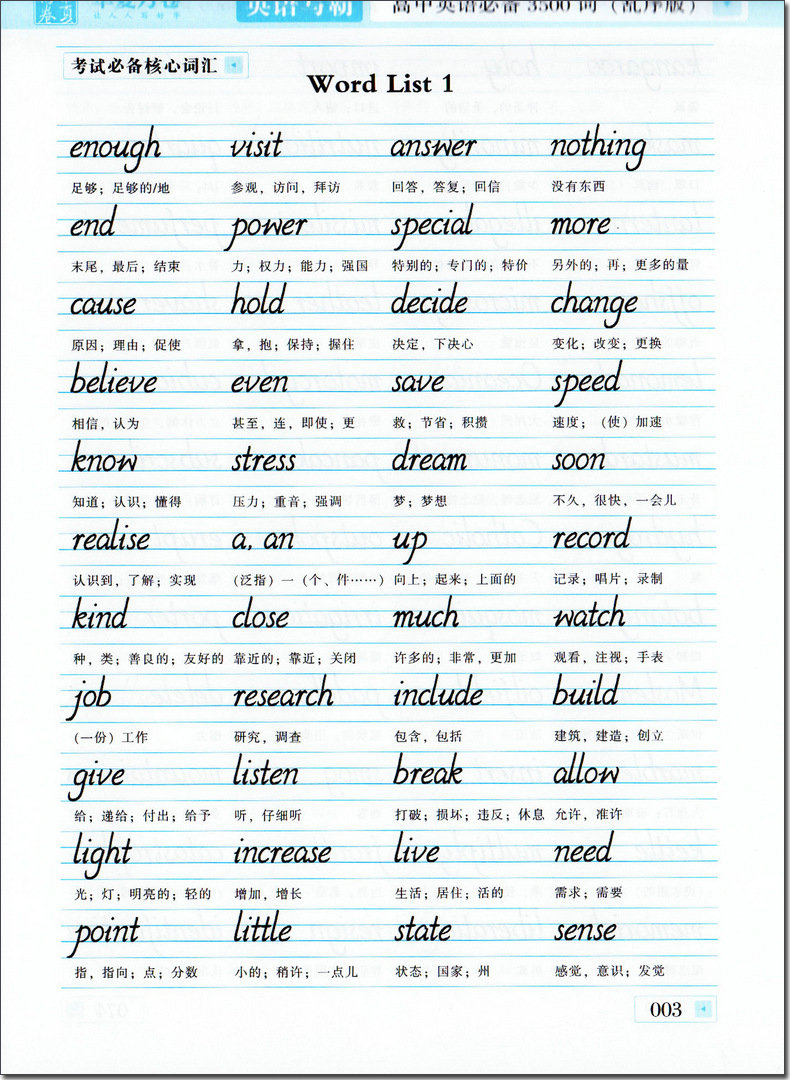 卷真
让人人写好字
高中英语必备3500词（乱序版）
考试必备核心词汇
Word List 1
enough visit answer nothing
足够；足够的/地 参观，访问，拜访 回答，答复；回信 没有东西
end power special more
末尾，最后；结束 力；权力；能力；强国 特别的；专门的；特价 另外的；再；更多的量
cause hold decide change
原因；理由；促使 拿，抱；保持；握住 决定，下决心 变化；改变；更换
believe even save speed
相信，认为 甚至，连，即使；更 救；节省；积攒 速度；（使）加速
know stress dream soon
知道；认识；懂得 压力；重音；强调 梦；梦想 不久，很快，一会儿
realise a, an up record
认识到，了解；实现 （泛指）一（个、件……） 向上；起来；上面的 记录；唱片；录制
kind close much watch
种，类；善良的；友好的 靠近的；靠近；关闭 许多的；非常，更加 观看，注视；手表
job research include build
（一份）工作 研究，调查 包含，包括 建筑，建造；创立
give listen break allow
给；递给；付出；给予 听，仔细听 打破；损坏；违反；休息 允许，准许
light increase live need
光；灯；明亮的；轻的 增加，增长 生活；居住；活的 需求；需要
point little state sense
指，指向；点；分数 小的；稍许；一点儿 状态；国家；州 感觉，意识；发觉
003